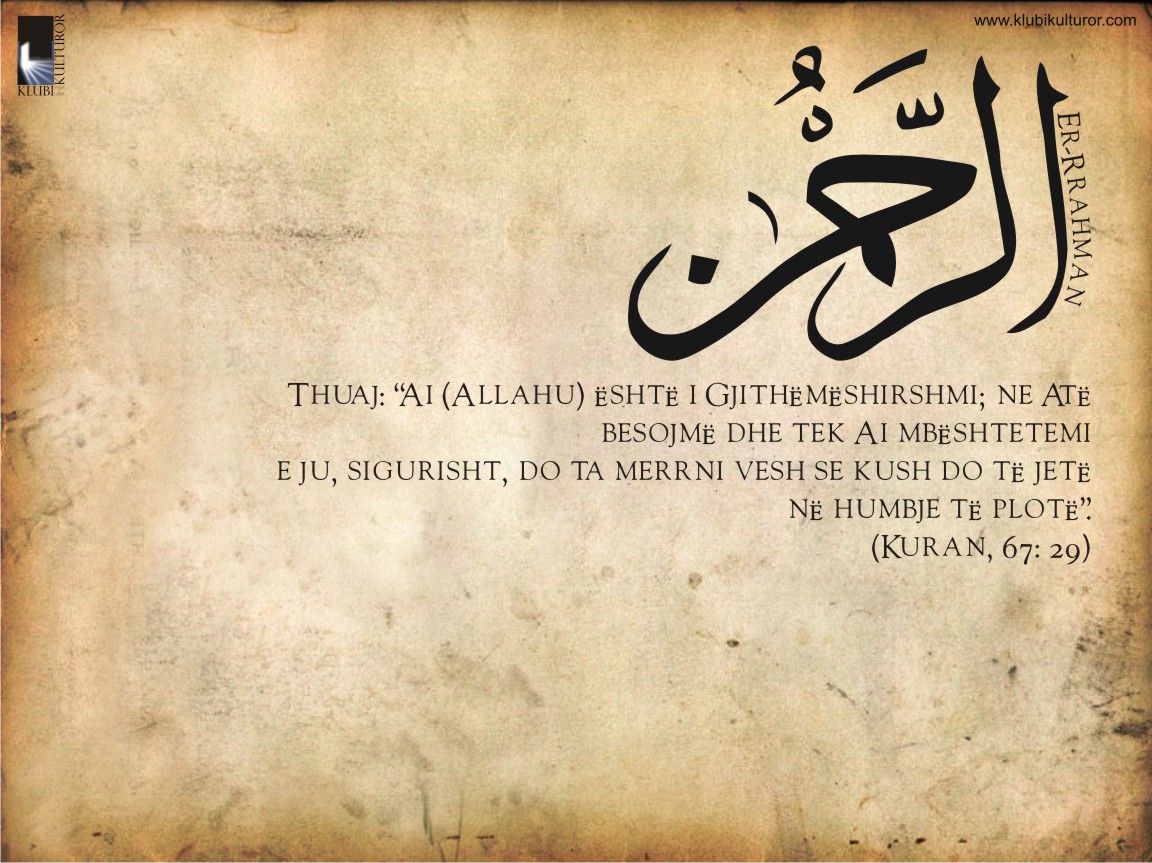 www.klubikulturor.com
KLUBI
KULTUROR
الرَّحْمٰنُ
ER-RRAHMAN
THUAJ: “AI (ALLAHU) ËSHTË I GJITHËMËSHIRSHMI; NE ATË
BESOJMË DHE TEK AI MBËSHTETEMI
E JU, SIGURISHT, DO TA MERRNI VESH SE KUSH DO TË JETË
NË HUMBJE TË PLOTË”.
(KURAN, 67: 29)